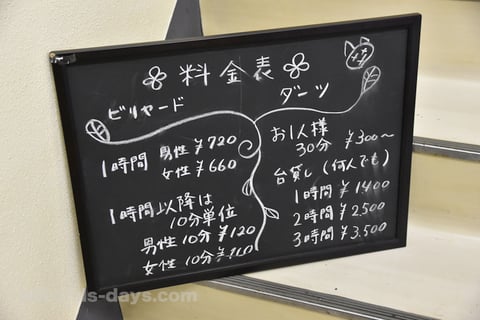 料金表
ビリヤード
1時間 男性 ¥720
女性 ¥660
1時間以降は
10分単位
男性 10分 ¥120
女性 10分
ダーツ
お1人様
30分 ¥300〜
台貸し(何人でも)
1時間 ¥1400
2時間 ¥2,500
3時間 ¥3,500
s-days.com